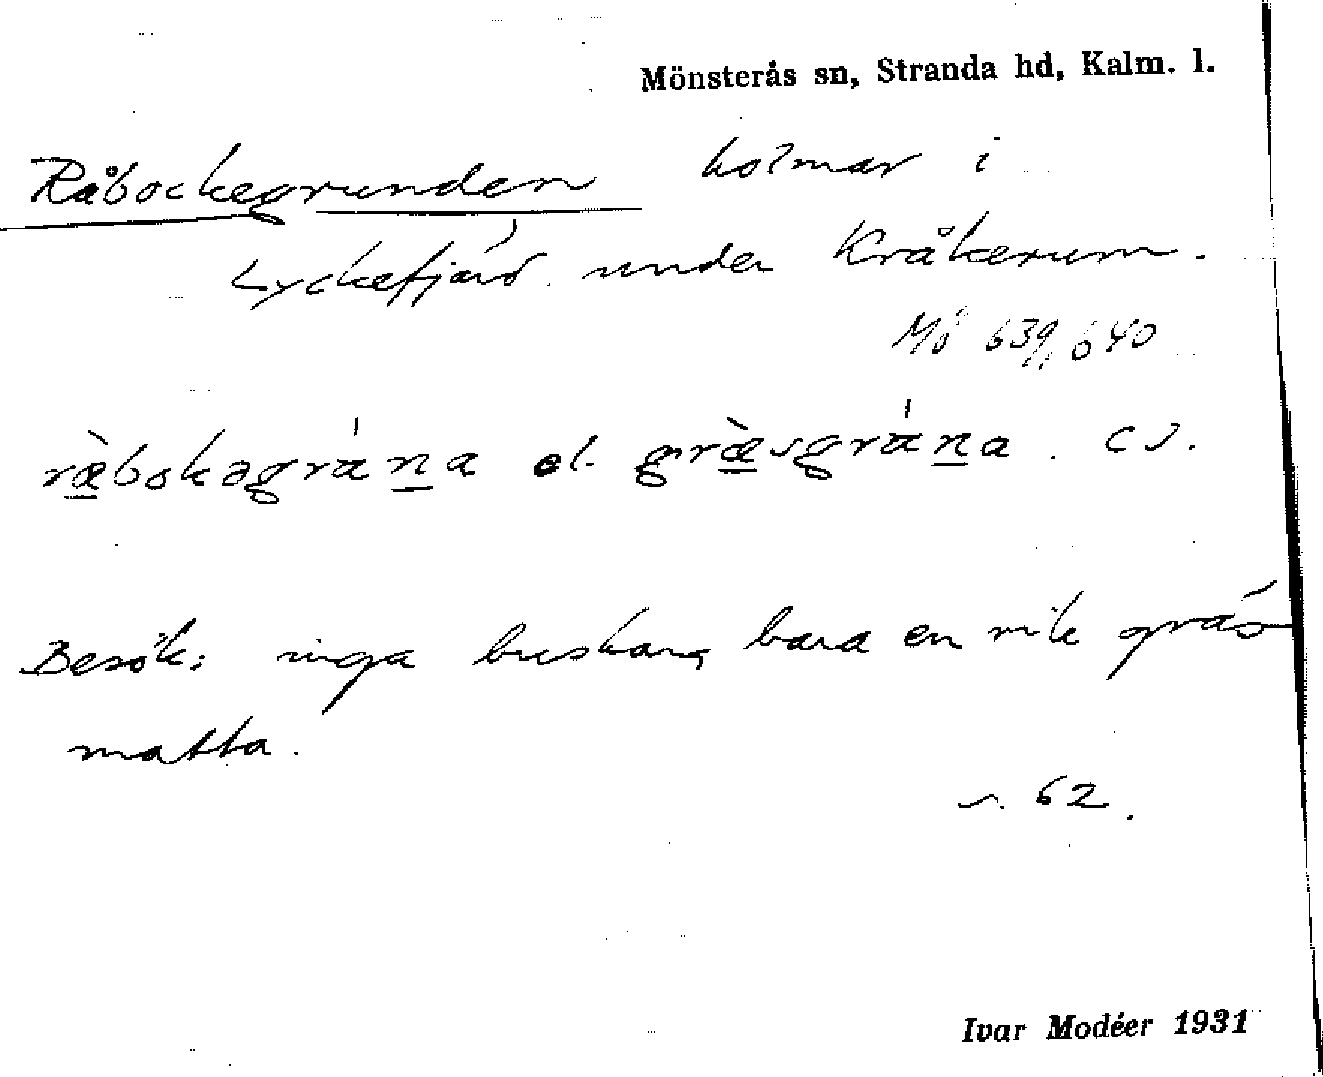 Mönsterås sn, Stranda hd, Kalm. l.
Råbockegrunden holmar i
Lyckefjärd under Kråkerum.
Mö 639, 640
ræ̀bokəgrána el. græ̀sgrána. CJ.
Besök: inga buskar, bara en rik gräs
matta.
s. 62.
Ivar Modéer 1931